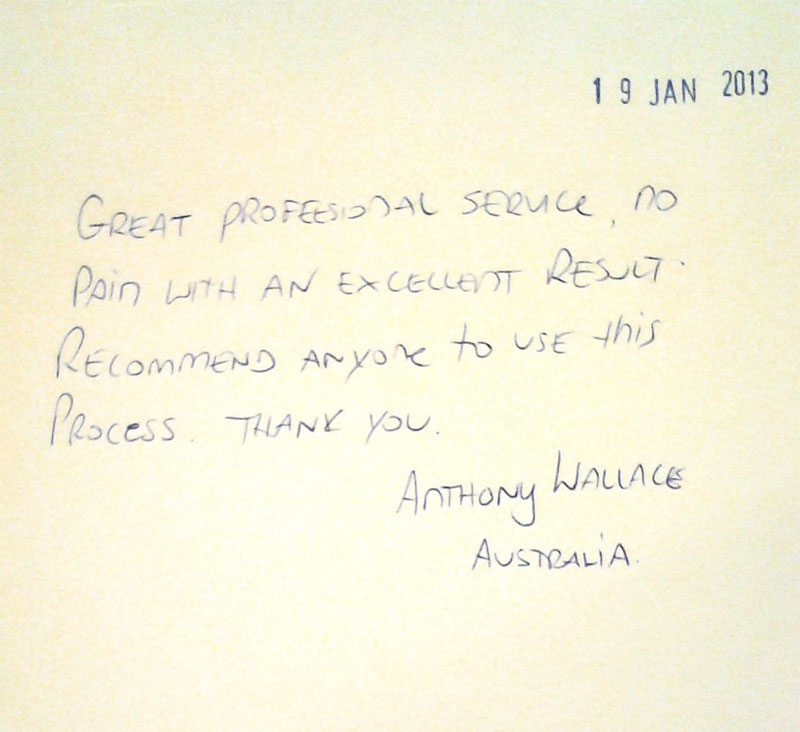 19 JAN 2013
GREAT PROFEESIONAL SERVICE, NO
PAin WITH AN EXCELLENT RESULT.
RECOMMEND ANYONE to USE this
PROCESS. THANK YOU.
ANTHONY WALLACE
AUSTRALiA.